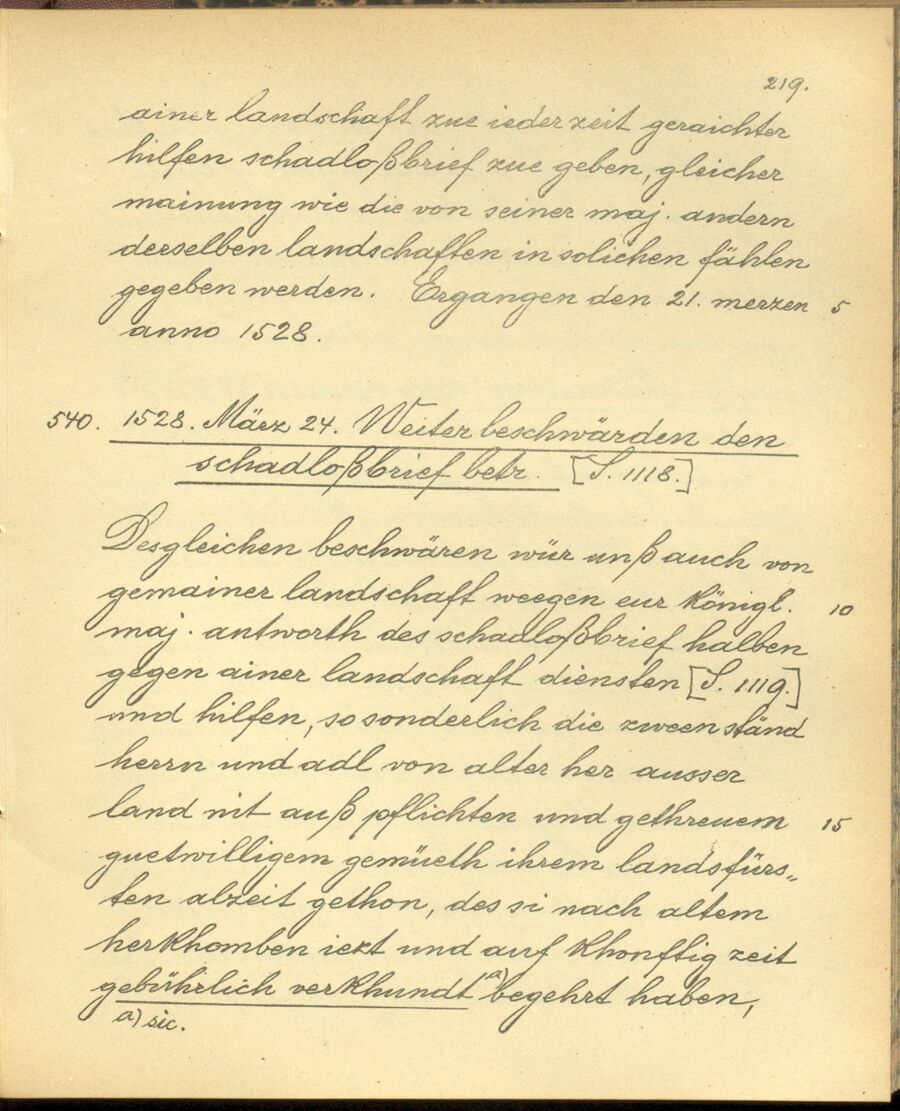 219.
ainer landschaft zue ieder zeit geraichter
hilfen schadloßbrief zue geben, gleicher
mainung wie die von seiner maj. andern
derselben landschaften in solichen fählen
gegeben werden. Ergangen den 21. merzen 5
anno 1528.
540. 1528. März 24. Weiter beschwärden den
schadloßbrief betr. [S. 1118.]
Desgleichen beschwären wür unß auch von
gemainer landschaft weegen eur königl. 10
maj. antworth des schadloßbrief halben
gegen ainer landschaft diensten [S. 1119.]
und hilfen, so sonderlich die zween ständ
herrn und adl von alter her ausser
land nit auß pflichten und gethreuem 15
guetwilligem gemüeth ihrem landsfürs-
ten alzeit gethon, des si nach altem
herkhomben iezt und auf khonftig zeit
gebührlich verkhundt a) begehrt haben,
a) sic.